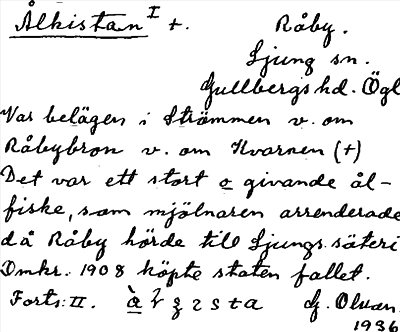 Ålkistan I +. Råby.
Ljung sn.
Gullbergs hd. Ögl
Var belägen i Strömmen v. om
Råbybron v. om Kvarnen (+)
Det var ett stort o givande ål-
fiske, som mjölnaren arrenderade
då Råby hörde till Ljungs säteri
Omkr. 1908 köpte staten fallet.
Forts: II. G. Olsson.
1936